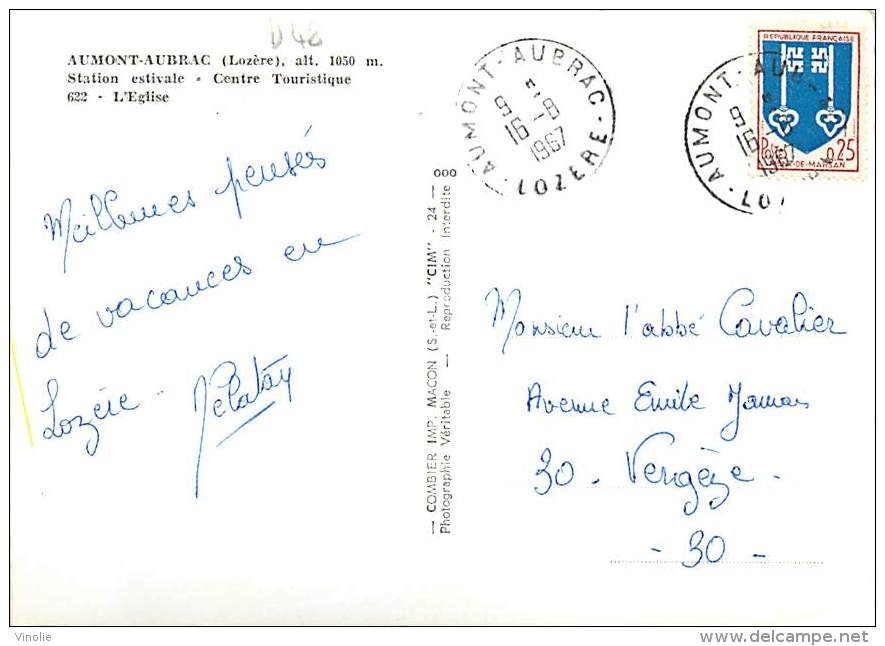 D 48
AUMONT-AUBRAC (Lozère), alt. 1050 m.
Station estivale - Centre Touristique
622 - L'Eglise
Meilleures pensées
de vacances en
Lozère -
AUMONT-AUBRAC
16-8
1967
LOZERE
REPUBLIQUE FRANÇAISE
0,25
MONT-DE-MARSAN
AUMONT-AU
16
1967
LOZ
— COMBIER IMP. MACON (S.-et-L.) "CIM" - 24 — 000
Photographie Véritable — Reproduction Interdite
Monsieur l'abbé Cavalier
Avenue Emile Jamais
30 - Vergèze -
- 30 -
Vinolie
www.delcampe.net